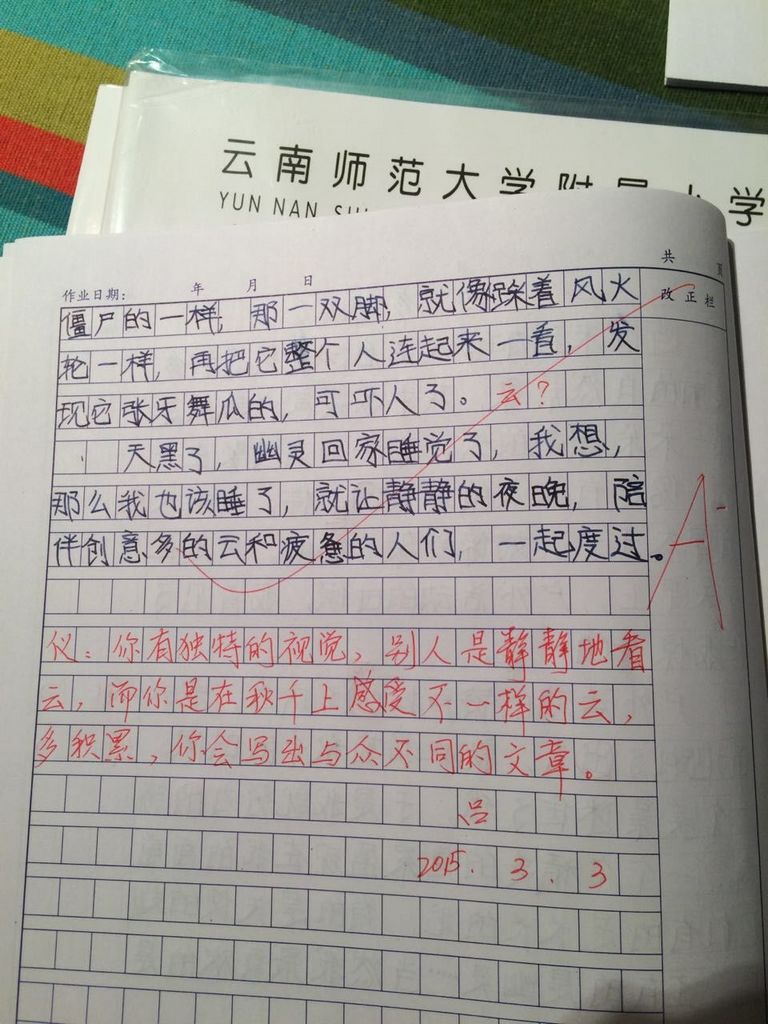 云南师范大学附属小学
YUN NAN
共 页
作业日期: 年 月 日
改正栏
僵尸的一样，那一双脚，就像踩着风火
轮一样，再把它整个人连起来一看，发
现它张牙舞瓜的，可吓人了。云？
天黑了，幽灵回家睡觉了，我想，
那么我也该睡了，就让静静的夜晚，陪
伴创意多的云和疲惫的人们，一起度过。
A-
仪：你有独特的视觉，别人是静静地看
云，而你是在秋千上感受不一样的云，
多积累，你会写出与众不同的文章。
吕
2015. 3. 3